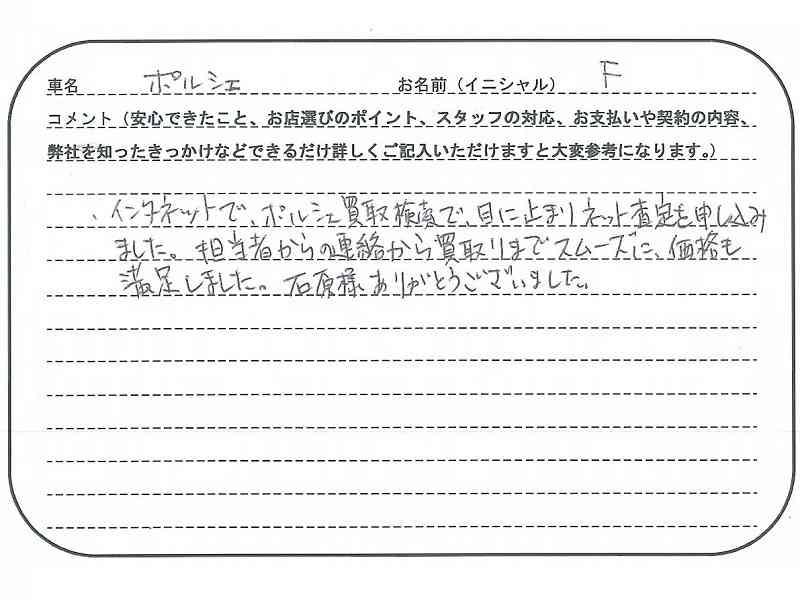 車名 ポルシェ お名前（イニシャル） F
コメント（安心できたこと、お店選びのポイント、スタッフの対応、お支払いや契約の内容、
弊社を知ったきっかけなどできるだけ詳しくご記入いただけますと大変参考になります。）
、インターネットで、ポルシェ買取検索で、目に止まりネット査定を申し込み
ました。担当者からの連絡から買取りまでスムーズに、価格も
満足しました。石原様、ありがとうございました。